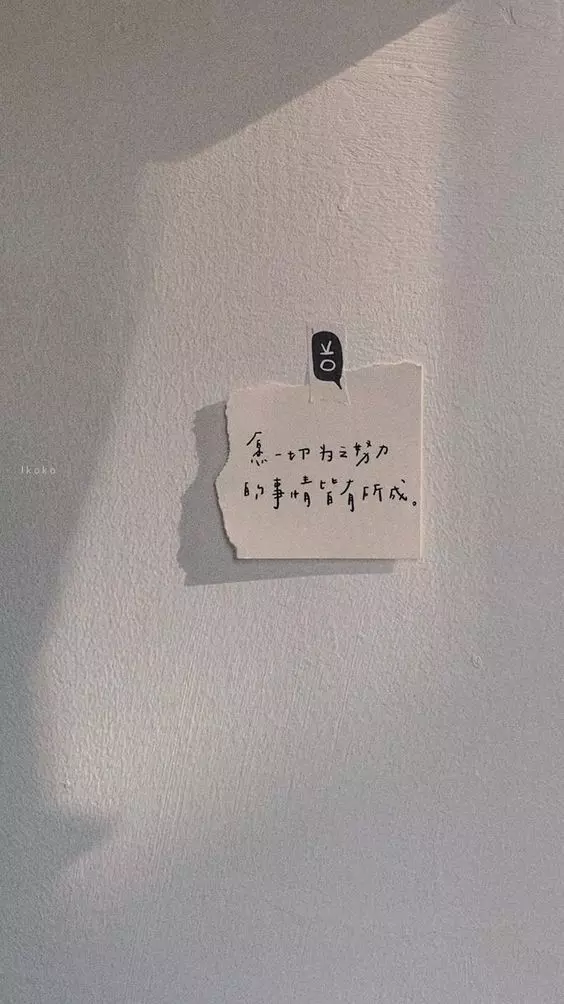 OK
愿一切为之努力
的事情皆有所成。
Jkoko